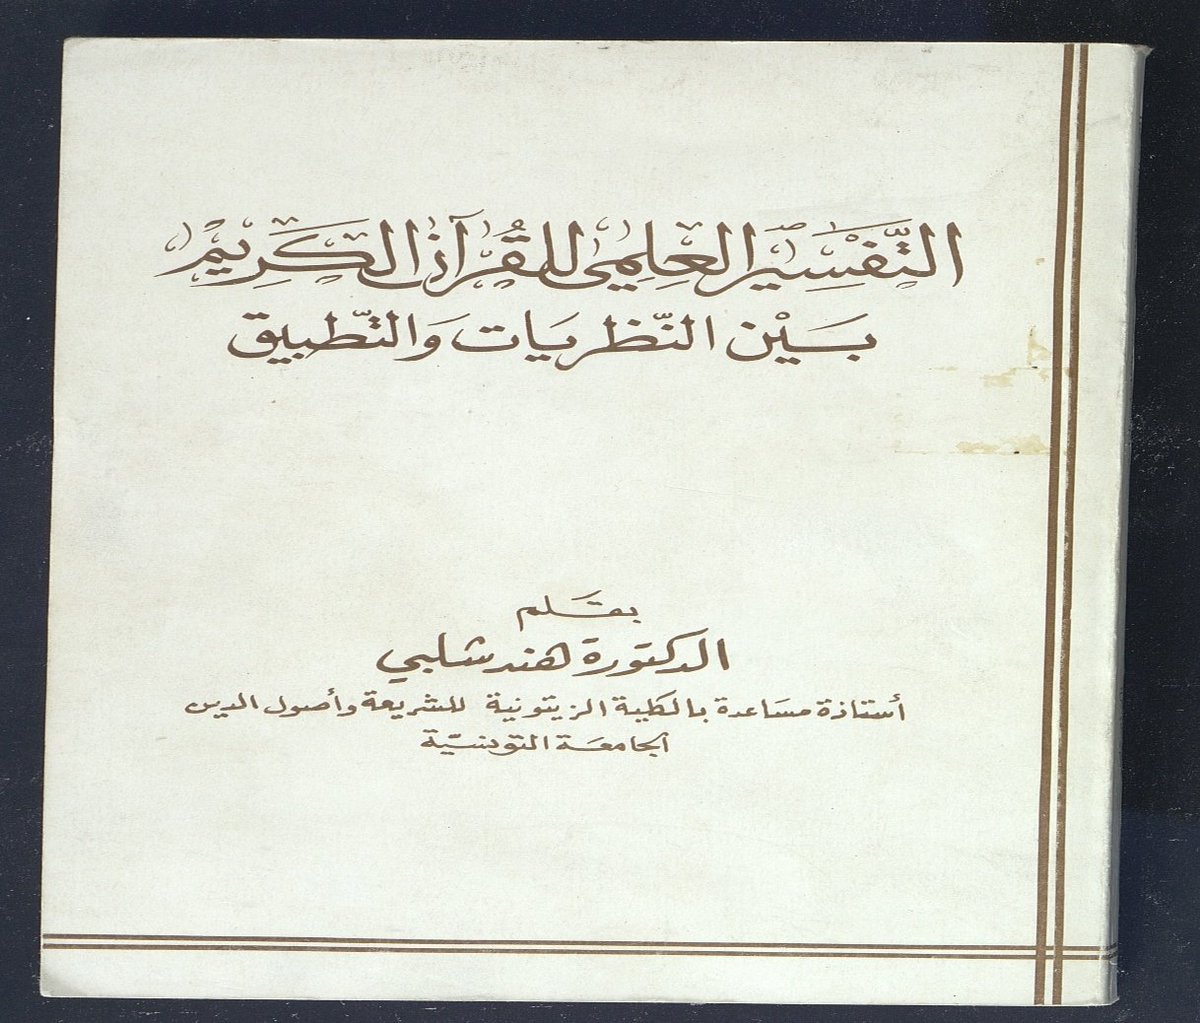 التَّفْسِير العِلِمي للقُرآن الكَرِيم
بَيْن النّظريَات وَالتّطبيق
بقَلم
الدكتورة هند شلبي
أستاذة مسَاعدة بالكلية الزيتونية للشريعة وأصول الدين
الجامعَة التونسيّة